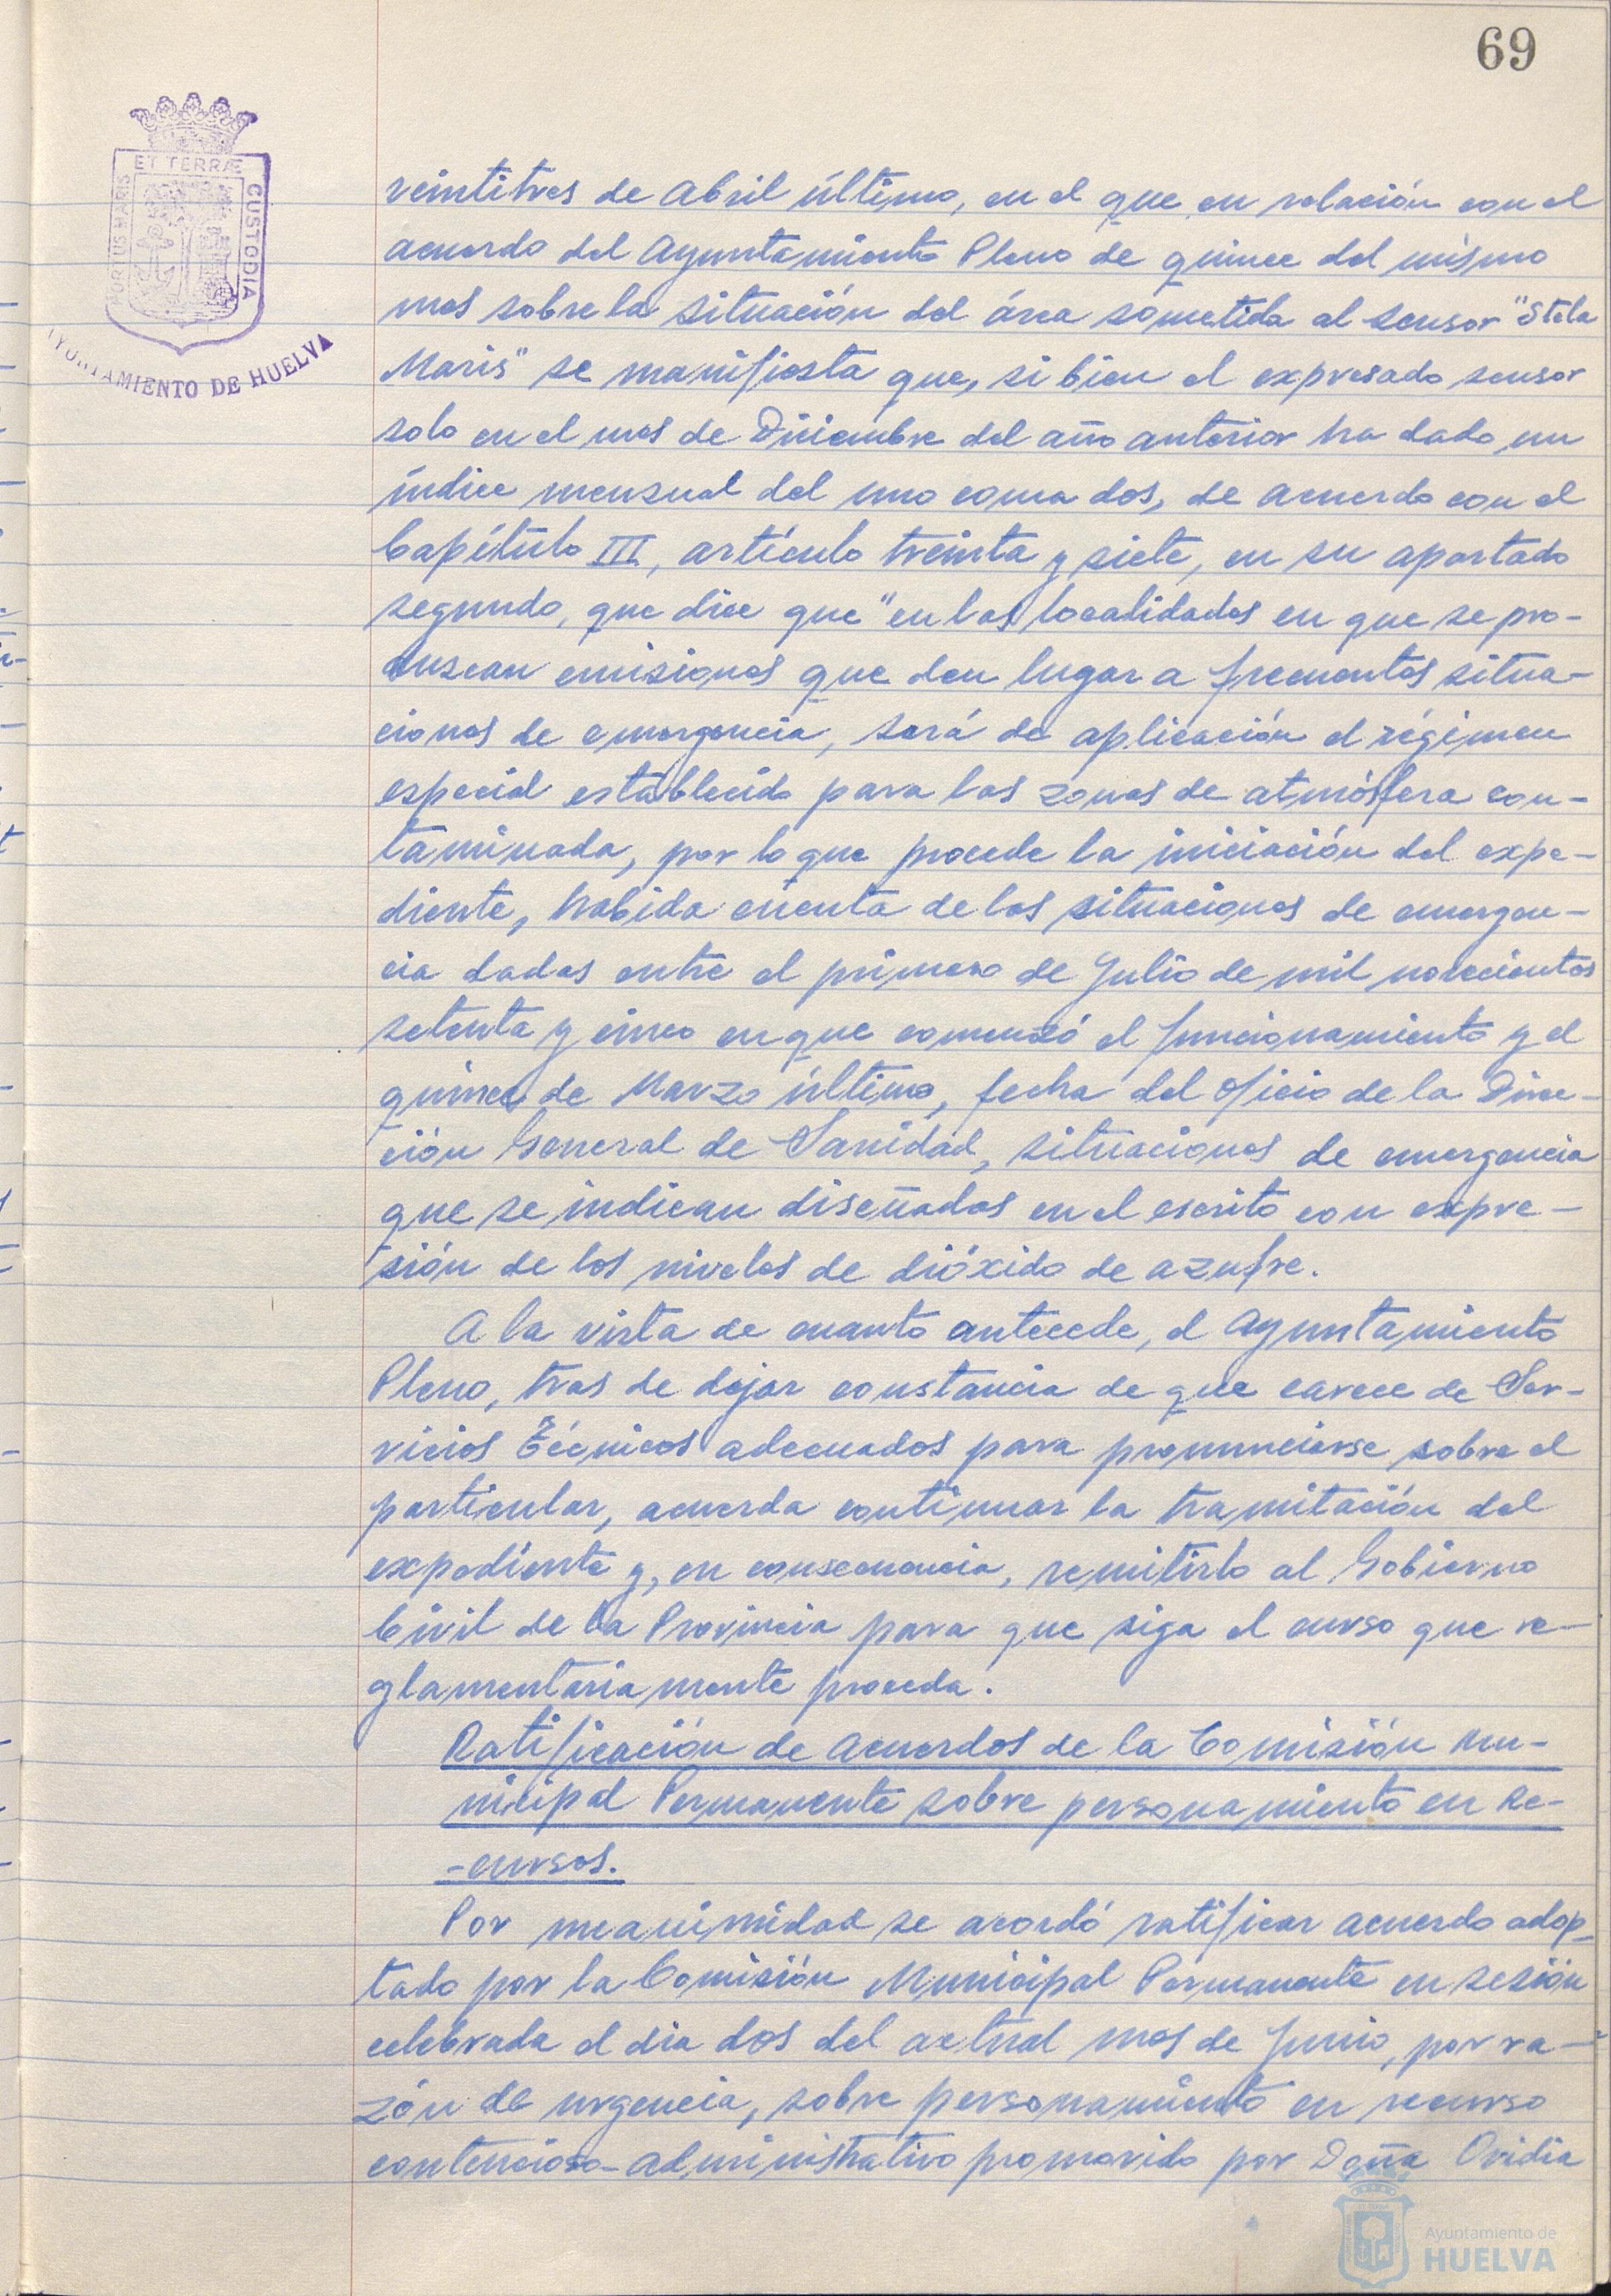 69
ET TERRÆ
PORTUS MARIS
CUSTODIA
AYUNTAMIENTO DE HUELVA
veintitres de Abril último, en el que en relación con el
acuerdo del Ayuntamiento Pleno de quince del mismo
mes sobre la situación del área sometida al sensor "Stela
Maris" se manifiesta que, si bien el expresado sensor
solo en el mes de Diciembre del año anterior ha dado un
índice mensual del uno coma dos, de acuerdo con el
Capítulo III, artículo treinta y siete, en su apartado
segundo, que dice que "en las localidades en que se pro-
duzcan emisiones que den lugar a frecuentes situa-
ciones de emergencia, será de aplicación el régimen
especial establecido para las zonas de atmósfera con-
taminada, por lo que procede la iniciación del expe-
diente, habida cuenta de las situaciones de emergen-
cia dadas entre el primero de Julio de mil novecientos
setenta y cinco en que comenzó el funcionamiento y el
quince de Marzo último, fecha del oficio de la Direc-
ción General de Sanidad, situaciones de emergencia
que se indican diseñadas en el escrito con expre-
sión de los niveles de dióxido de azufre.
A la vista de cuanto antecede, el Ayuntamiento
Pleno, tras de dejar constancia de que carece de Ser-
vicios Técnicos adecuados para pronunciarse sobre el
particular, acuerda continuar la tramitación del
expediente y, en consecuencia, remitirlo al Gobierno
Civil de la Provincia para que siga el curso que re-
glamentariamente proceda.
Ratificación de acuerdos de la Comisión Mu-
nicipal Permanente sobre personamiento en Re-
-cursos.
Por unanimidad se acordó ratificar acuerdo adop-
tado por la Comisión Municipal Permanente en sesión
celebrada el dia dos del actual mes de Junio, por ra-
zón de urgencia, sobre personamiento en recurso
contencioso-administrativo promovido por Doña Ovidia
Ayuntamiento de
HUELVA